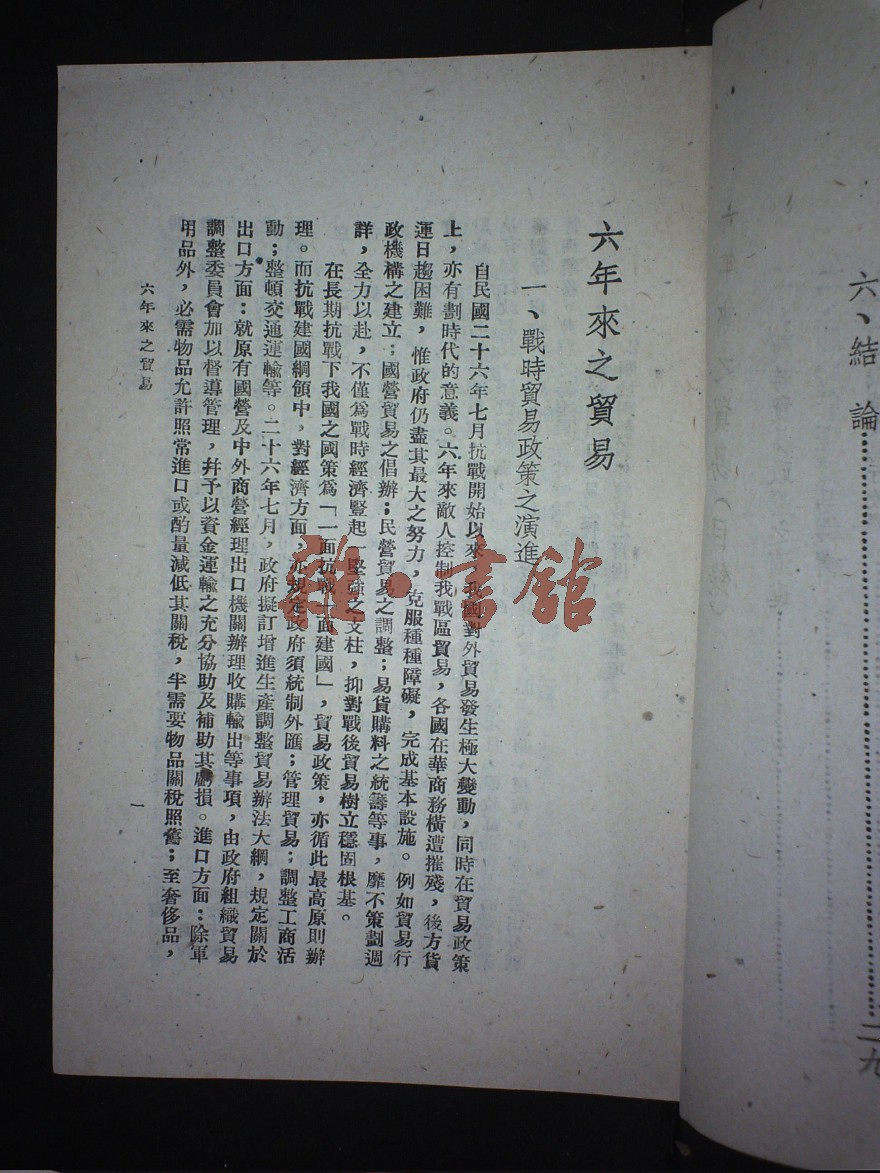 六、結論
二九
六年來之貿易
一、戰時貿易政策之演進
自民國二十六年七月抗戰開始以來，我國對外貿易發生極大變動，同時在貿易政策
上，亦有劃時代的意義。六年來敵人控制我戰區貿易，各國在華商務橫遭摧殘，後方貨
運日趨困難，惟政府仍盡其最大之努力，克服種種障礙，完成基本設施。例如貿易行
政機構之建立；國營貿易之倡辦；民營貿易之調整；易貨購料之統籌等事，靡不策劃週
詳，全力以赴，不僅爲戰時經濟豎起一堅強之支柱，抑對戰後貿易樹立穩固根基。
在長期抗戰下我國之國策爲「一面抗戰一面建國」，貿易政策，亦循此最高原則辦
理。而抗戰建國綱領中，對經濟方面，亦規定政府須統制外匯；管理貿易；調整工商活
動；整頓交通運輸等。二十六年七月，政府擬訂增進生產調整貿易辦法大綱，規定關於
出口方面：就原有國營及中外商營經理出口機關辦理收購輸出等事項，由政府組織貿易
調整委員會加以督導管理，幷予以資金運輸之充分協助及補助其虧損。進口方面：除軍
用品外，必需物品允許照常進口或酌量減低其關稅，半需要物品關稅照舊；至奢侈品，
六年來之貿易
一
雜·書館